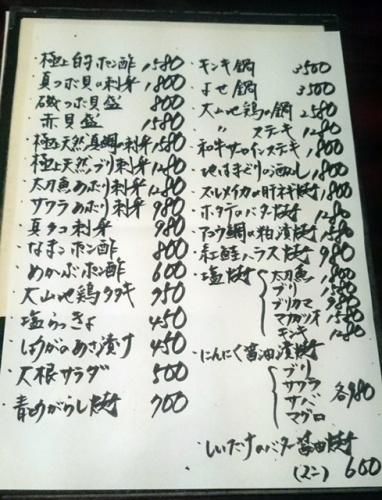 極上的ポン酢 1,580
真つぶ貝の刺身 1,800
磯つぶ貝盛 800
赤貝盛 1,580
極上天然真鯛の刺身 1,580
極上天然ブリ刺身 1,280
太刀魚あぶり刺身 1,280
サワラあぶり刺身 980
真タコ刺身 980
なまこポン酢 800
めかぶポン酢 600
大山地鶏タタキ 950
塩らっきょ 450
しょうがのあさ漬け 450
大根サラダ 500
青めがらし焼 700
キンキ鍋 3,500
よせ鍋 3,500
大山地鶏の鍋 2,580
〃 ステーキ 1,280
和牛サーロインステーキ 1,800
地はまぐりの酒むし 1,800
スルメイカの肝和焼 1,800
ホタテのバター焼 1,280
アコウ鯛の粕漬 1,580
紅鮭ハラス焼 980
塩焼 太刀魚 1,800
ブリ 1,580
ブリカマ 980
マカツオ 1,580
キンキ 1,280
にんにく醤油漬焼
ブリ
サワラ
サバ
マグロ
各980
しいたけのバター醤油焼
(2コ) 600